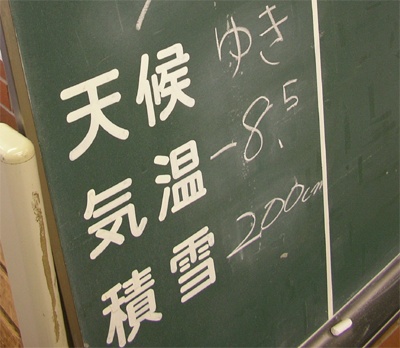 天候 ゆき
気温 -8.5
積雪 200cm